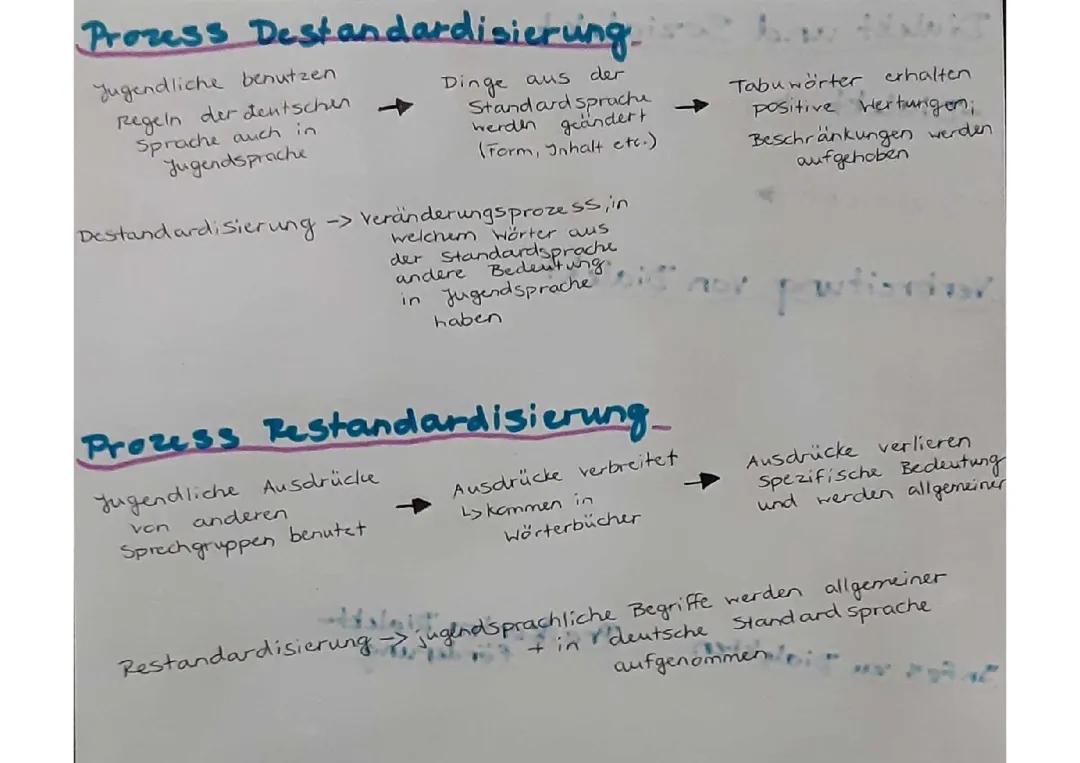 Prozess Destandardisierung
Jugendliche benutzen
Regeln der deutschen
Sprache auch in
Jugendsprache
→
Dinge aus der
Standardsprache
werden geändert
(Form, Inhalt etc.)
→
Tabuwörter erhalten
positive Wertungen;
Beschränkungen werden
aufgehoben
Destandardisierung -> Veränderungsprozess, in
welchem Wörter aus
der Standardsprache
andere Bedeutung
in Jugendsprache
haben
Prozess Restandardisierung
Jugendliche Ausdrücke
von anderen
Sprechgruppen benutzt
→
Ausdrücke verbreitet
↳ kommen in
Wörterbücher
→
Ausdrücke verlieren
spezifische Bedeutung
und werden allgemeiner
Restandardisierung -> jugendsprachliche Begriffe werden allgemeiner
+ in deutsche Standardsprache
aufgenommen